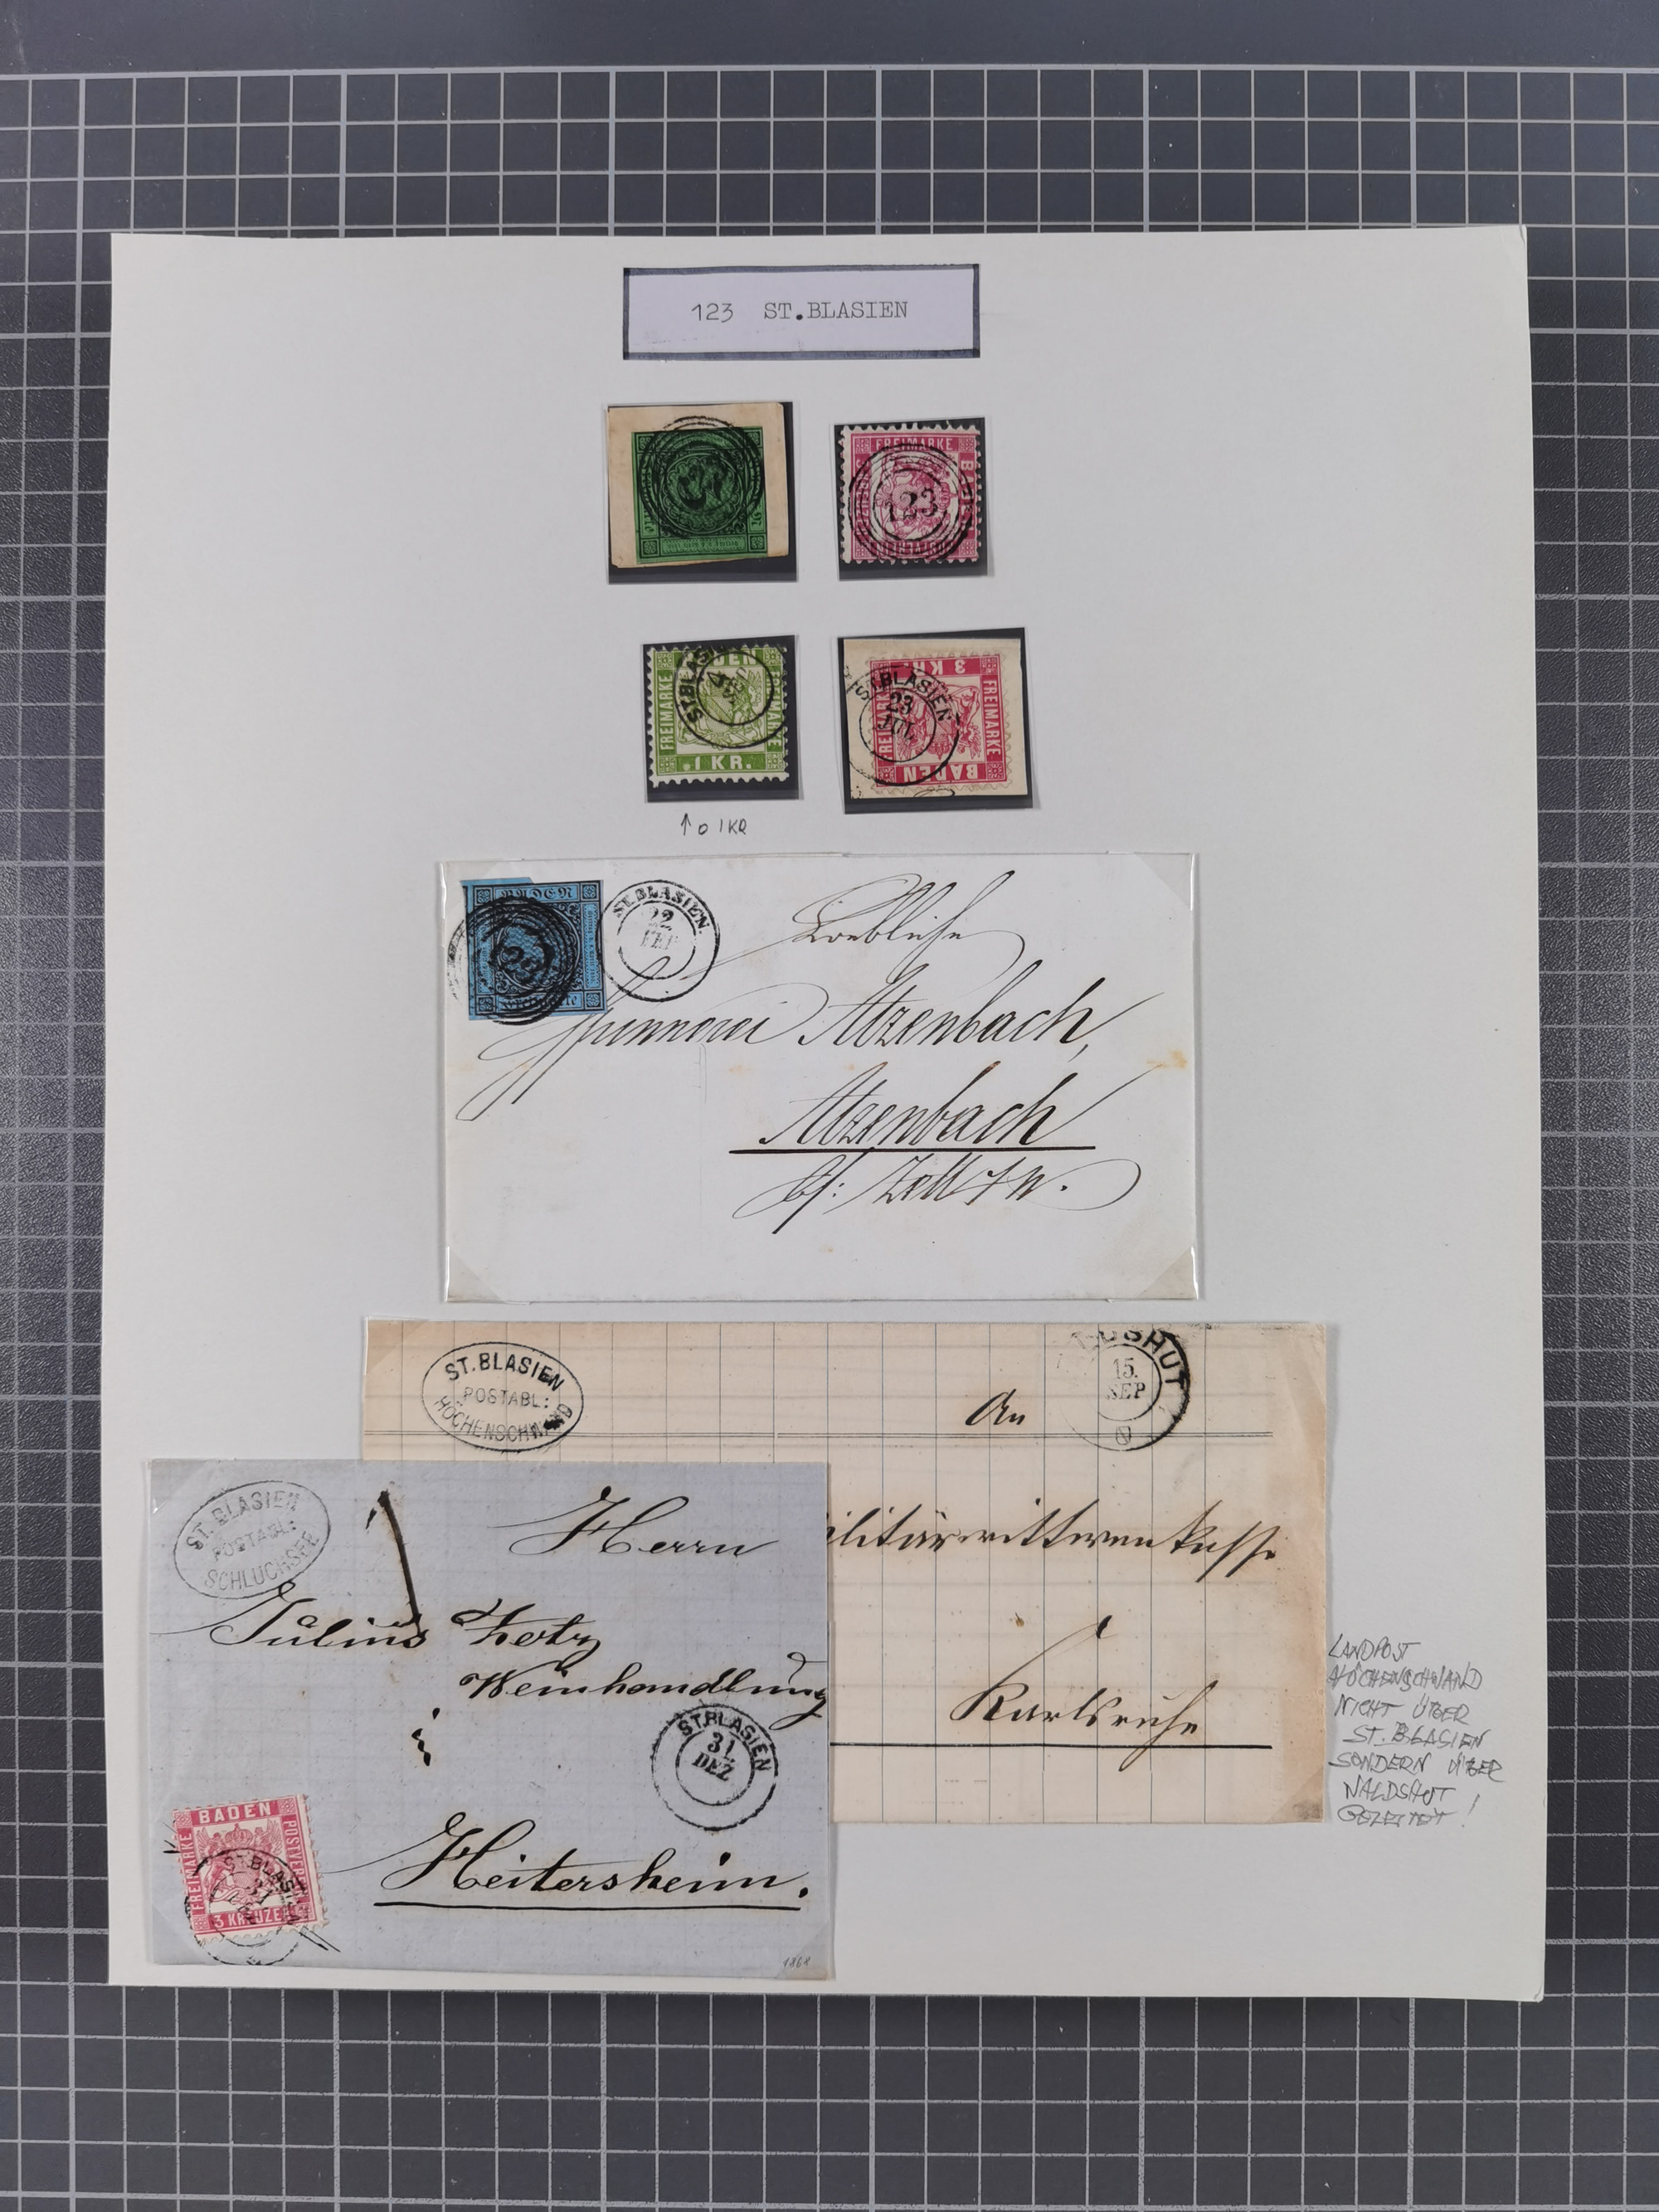 123 ST.BLASIEN
FREIMARKE
123
ST.BLASIEN
FREIMARKE
1 KR.
3 KR.
ST.BLASIEN
23
JUL
FREIMARKE
FREIMARKE
BADEN
↑ o 1KR
BADEN
Freimarke
ST.BLASIEN.
22
FEB
Loebliche
Spinnerei Atzenbach,
Atzenbach
bf: Zell i/W.
ST.BLASIEN
POSTABL:
HÖCHENSCHWAND
DSHUT
15.
SEP
An
ilitärwittwenkasse
Karlsruhe
ST.BLASIEN
POSTABL:
SCHLUCHSEE
1
Herrn
Julius
Weinhandlung
ST.BLASIEN
31
DEZ
Heitersheim.
BADEN
FREIMARKE
POSTVEREIN
3 KREUZER
ST.BLASIEN
LANDPOST
HÖCHENSCHWAND
NICHT ÜBER
ST. BLASIEN
SONDERN ÜBER
WALDSHUT
GELEITET!